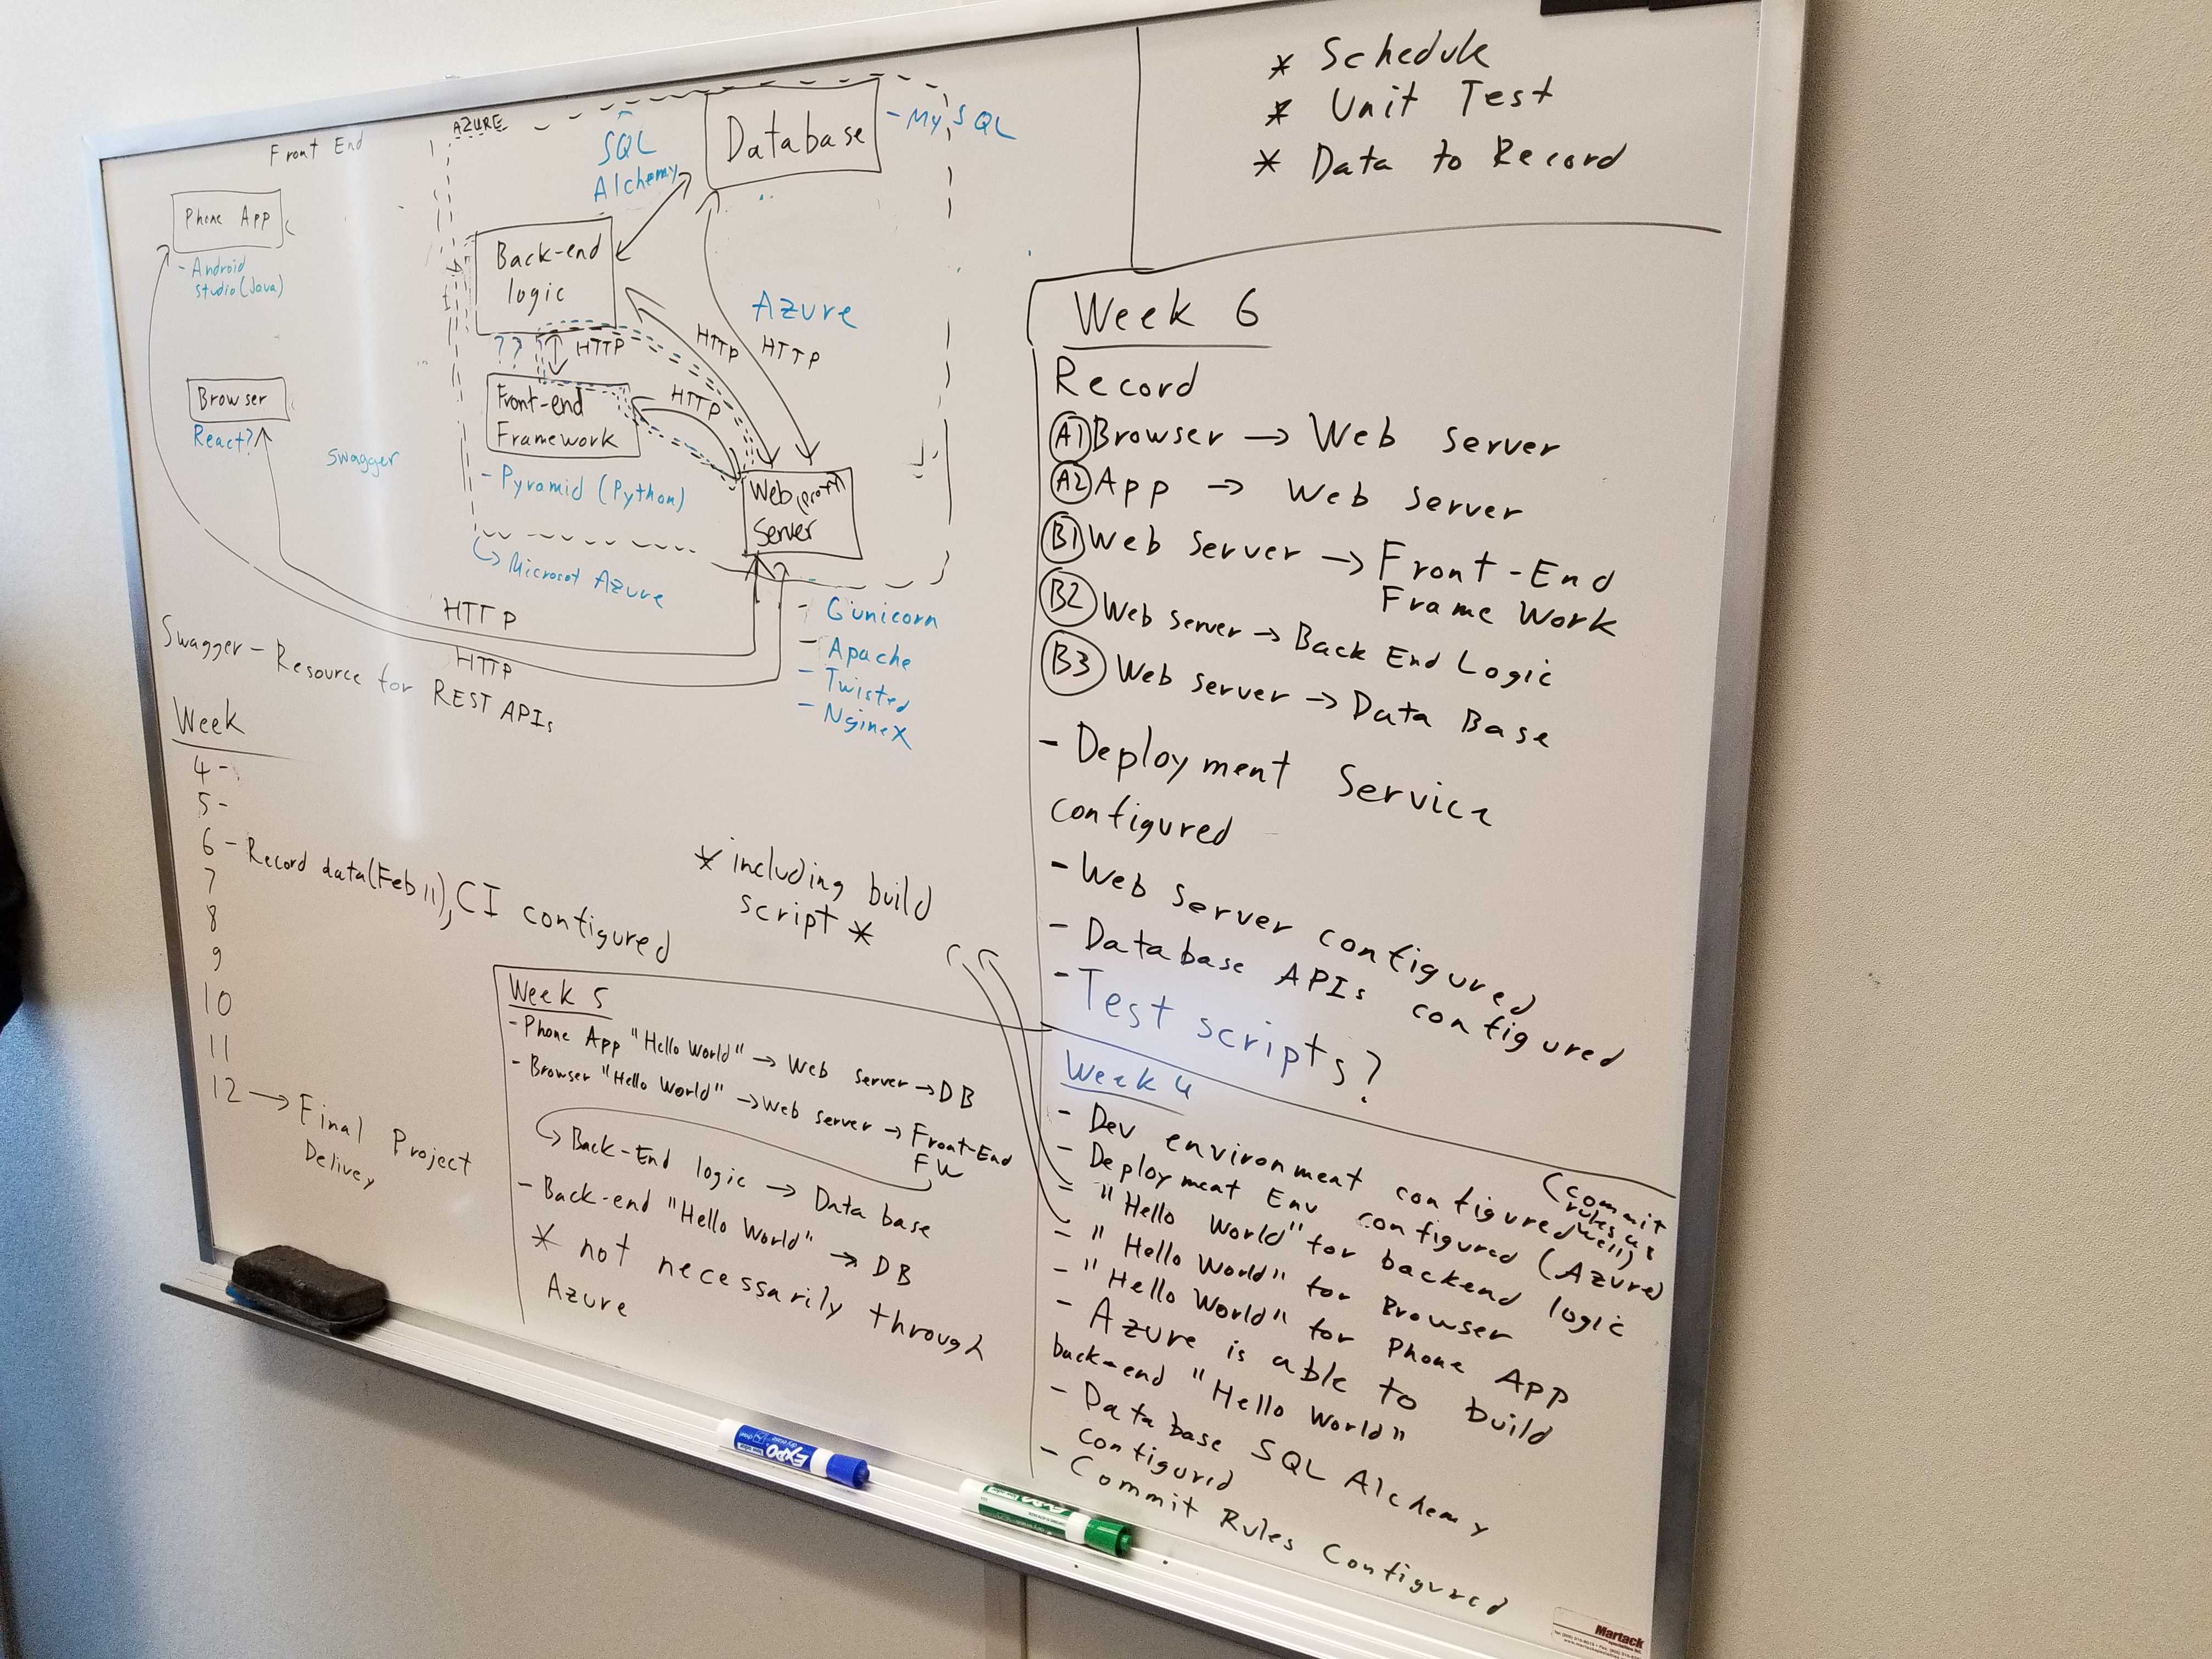 Front End
AZURE
SQL
Alchemy
Database
- My SQL
Phone App
- Android
studio (Java)
Back-end
logic
Azure
HTTP
HTTP
??
HTTP
Browser
React?
Swagger
Front-end
Framework
HTTP
- Pyramid (Python)
Web
Server
Microsot Azure
HTTP
HTTP
- Gunicorn
- Apache
- Twisted
- NgineX
Swagger - Resource for
REST APIs
Week
4 -
5 -
6 - Record data (Feb 11), CI configured
7
8
9
10
11
12 → Final Project
Delivey
* including build
script *
Week 5
- Phone App "Hello World" → Web server → DB
- Browser "Hello World" → Web server → Front-End
FW
Back-End logic → Data base
- Back-end "Hello World" → DB
* not necessarily through
Azure
* Schedule
* Unit Test
* Data to Record
Week 6
Record
A1 Browser → Web Server
A2 App → Web Server
B1 Web Server → Front-End
Frame Work
B2 Web Server → Back End Logic
B3 Web Server → Data Base
- Deployment Service
configured
- Web Server configured
- Database APIs configured
- Test scripts?
Week 4
- Dev environment configured (commit
rules as
well)
- Deployment Env configured (Azure)
- "Hello World" for backend logic
- "Hello World" for Browser
- "Hello World" for Phone App
- Azure is able to build
back-end "Hello World"
- Database SQL Alchemy
configured
- Commit Rules Configured
EXPO
Martack